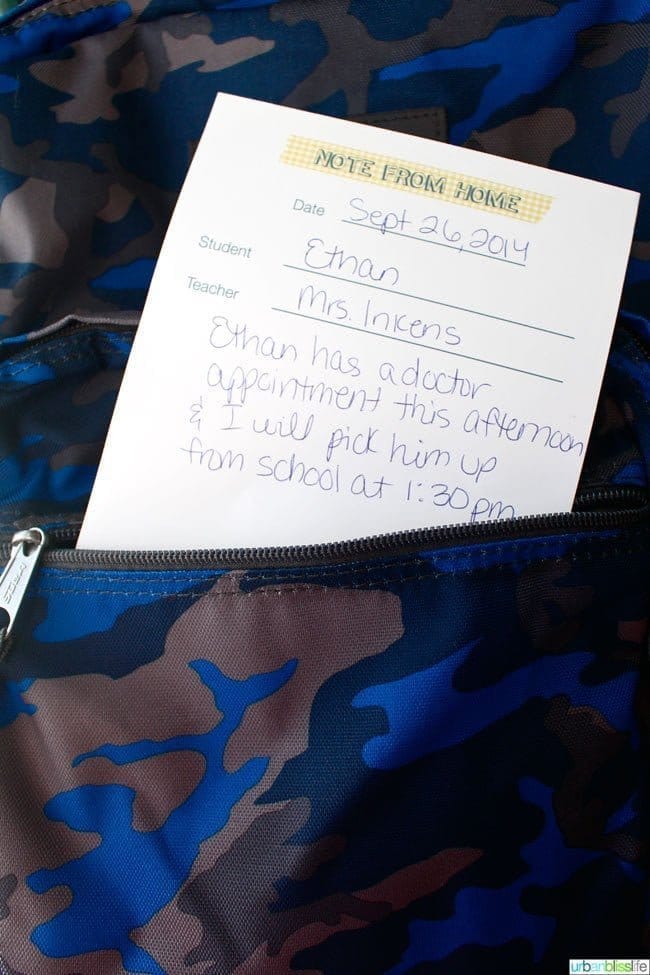 NOTE FROM HOME
Date Sept 26, 2014
Student Ethan
Teacher Mrs. Inkens
Ethan has a doctor
appointment this afternoon
& I will pick him up
from school at 1:30pm
urbanblisslife